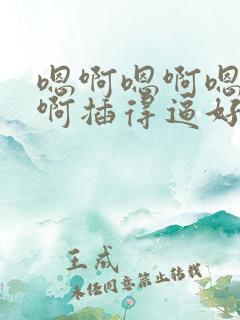 嗯啊嗯啊嗯
啊插得逼好
王成
未经同意禁止转载